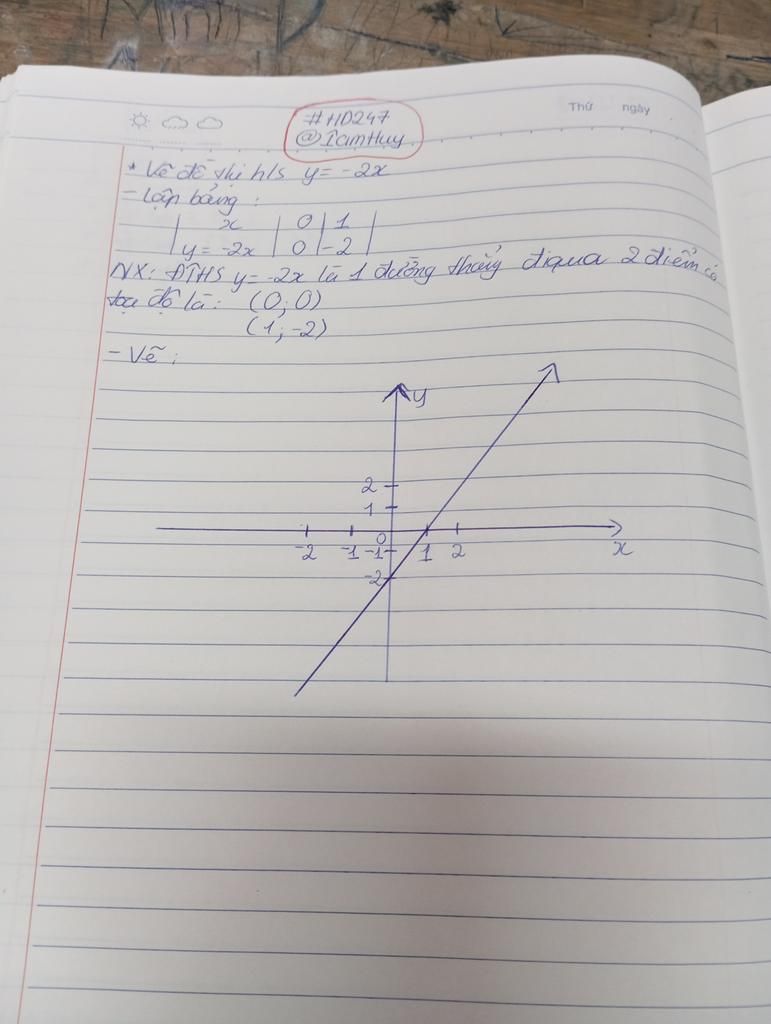 Thứ ngày
#HD247
@IamHuy
* Vẽ đồ thị h/s y = -2x
- Lập bảng :
x 0 1
y = -2x 0 -2
NX: ĐTHS y = -2x là 1 đường thẳng đi qua 2 điểm có
tọa độ là: (0; 0)
(1; -2)
- Vẽ :
y
2
1
0
-2 -1 -1 1 2 x
-2